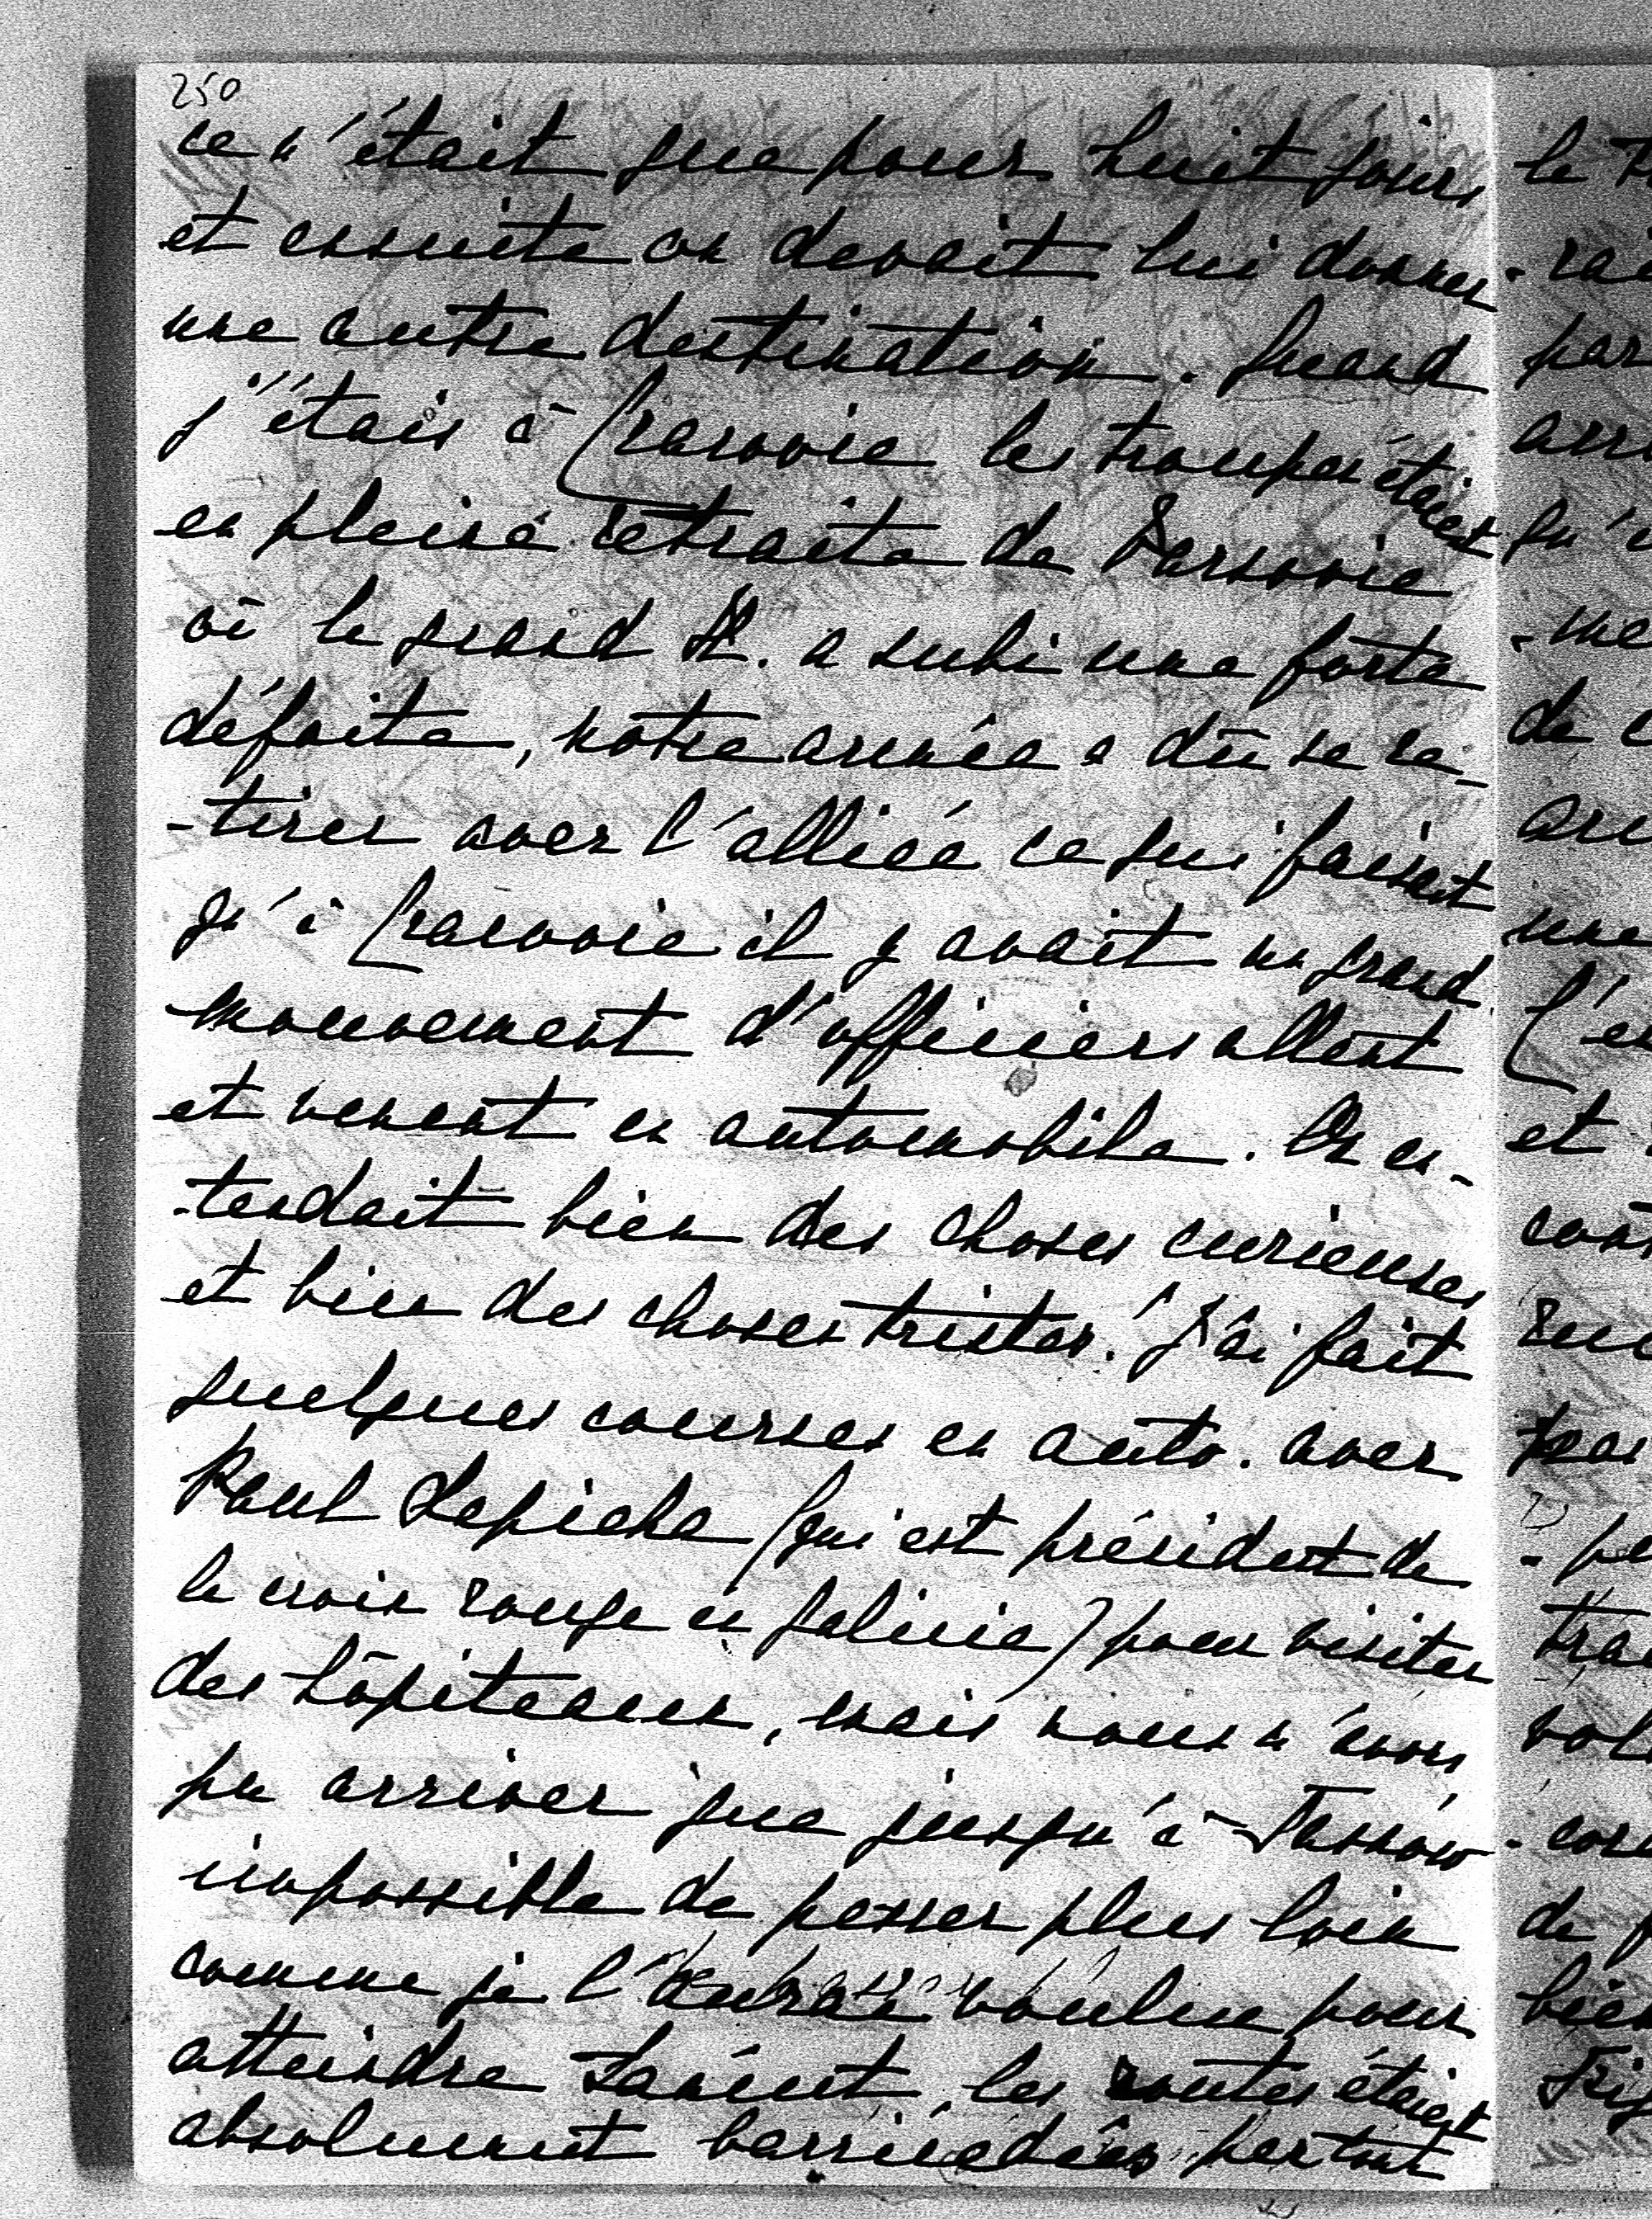 250
ce n'était que pour huit jours
et ensuite on devait lui donner
une autre destination. Quand
j'étais à Cracovie les troupes étaient
en pleine retraite de Varsovie
où le grand H. a subi une forte
défaite, notre armée a dû se re-
-tirer avec l'alliée ce qui faisait
qu'à Cracovie il y avait un grand
mouvement d'officiers allant
et venant en automobile. On en-
-tendait bien des choses curieuses
et bien des choses tristes. J'ai fait
quelques courses en auto. avec
Paul Sapieha (qui est président de
la croix rouge en Galicie) pour visiter
des hôpiteaux, mais nous n'avons
pu arriver que jusqu'à Tarnów
impossible de passer plus loin
comme je l'aurai voulue pour
atteindre Łańcut, les routes étaient
absolument barricadées partout
le
par
de
une
et
de